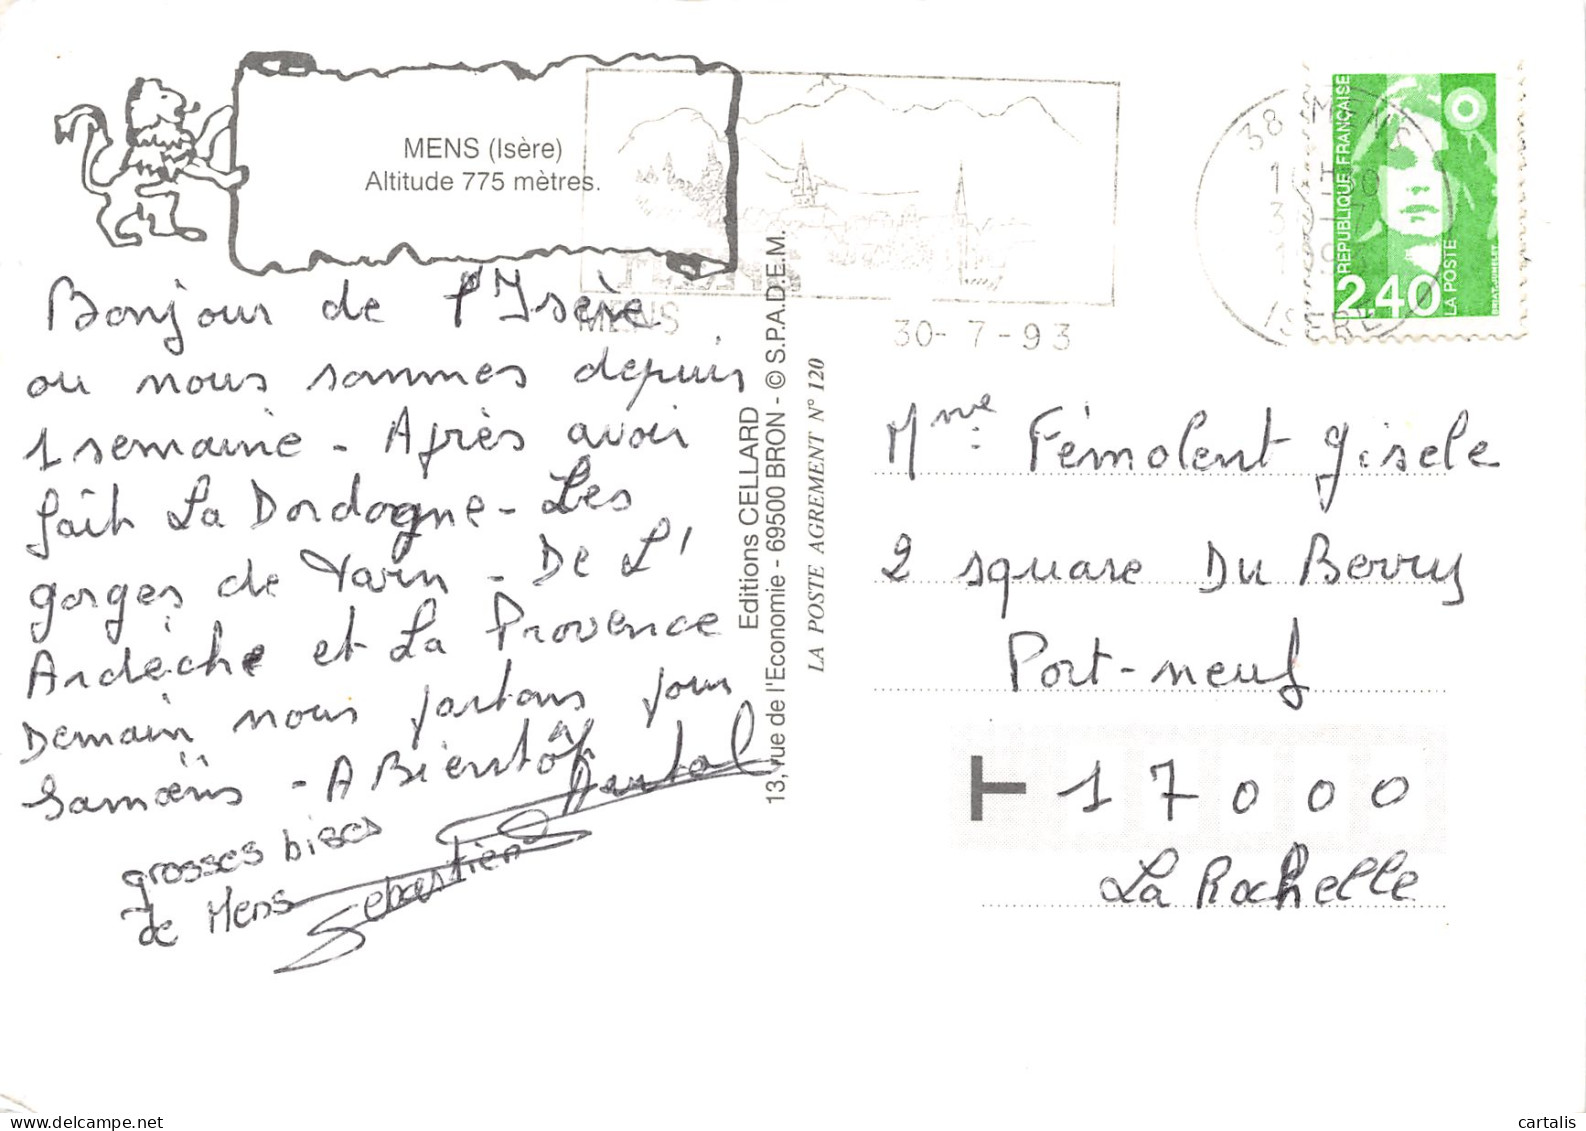 MENS (Isère)
Altitude 775 mètres.
Bonjour de l'Isère
ou nous sommes depuis
1 semaine - Après avoir
fait La Dordogne - Les
gorges de Tarn - De L'
Ardèche et La Provence
Demain nous partons pour
Samoëns - A Bientôt
grosses bises
de Mens
Sebastien
Editions CELLARD
13, rue de l'Economie - 69500 BRON - © S.P.A.D.E.M.
LA POSTE AGREMENT N° 120
MENS
30-7-93
38 MENS
ISERE
REPUBLIQUE FRANÇAISE
2,40
LA POSTE
BRIAT-JUMELET
Mme Fémolent Gisele
2 square Du Berry
Port-neuf
T 17000
La Rochelle
cartalis